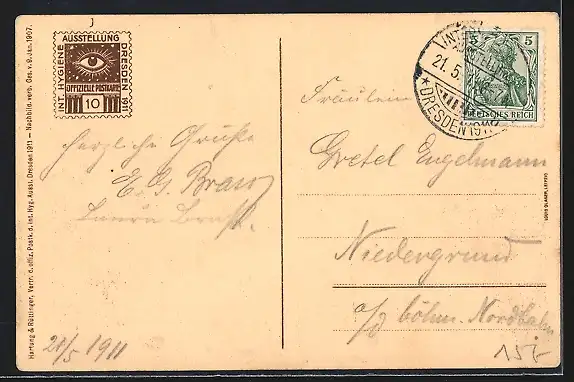 J
INT. HYGIENE
AUSSTELLUNG
DRESDEN 1911
OFFIZIELLE POSTKARTE
10
Hartung & Rüttinger, Vertr. d. offiz. Postk. d. Int. Hyg. Ausst. Dresden 1911 — Nachbild. verb. Ges. v. 9. Jan. 1907.
herzliche Grüße
E. G.
Laura
21/5 1911
INT.
AUSSTELLUNG
21. 5.
* DRESDEN 1911
5
DEUTSCHES REICH
Fräulein
Gretel Engelmann
Niedergrund
a/d böhm. Nordbahn
15,-